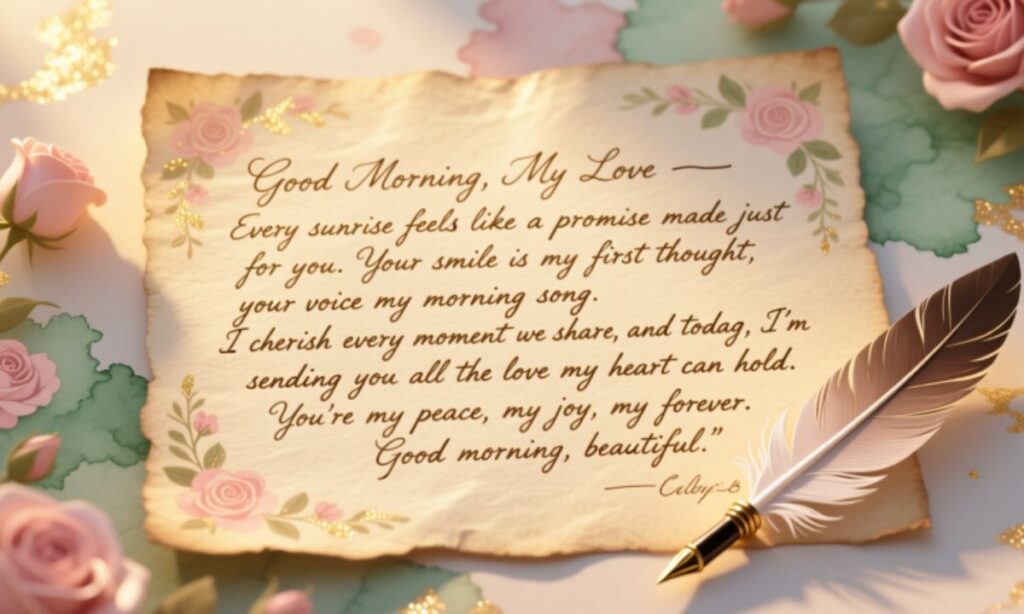 Good Morning, My Love —
Every sunrise feels like a promise made just
for you. Your smile is my first thought,
your voice my morning song.
I cherish every moment we share, and todag, I'm
sending you all the love my heart can hold.
You're my peace, my joy, my forever.
Good morning, beautiful.”